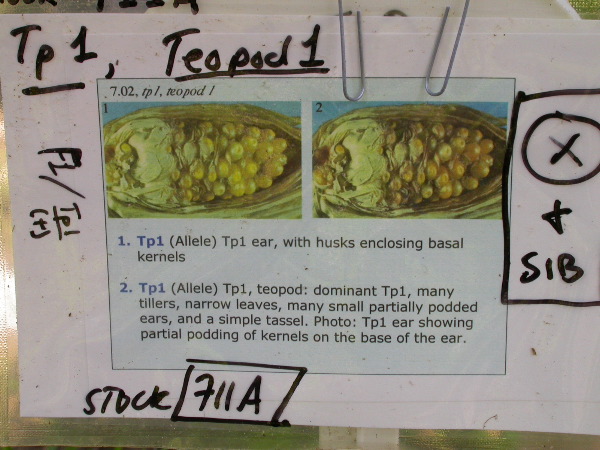 Tp1, Teopod 1
7.02, tp1, teopod 1
1
2
1. Tp1 (Allele) Tp1 ear, with husks enclosing basal
kernels
2. Tp1 (Allele) Tp1, teopod: dominant Tp1, many
tillers, narrow leaves, many small partially podded
ears, and a simple tassel. Photo: Tp1 ear showing
partial podding of kernels on the base of the ear.
Tp1
(+)
X
+
SIB
STOCK 711A